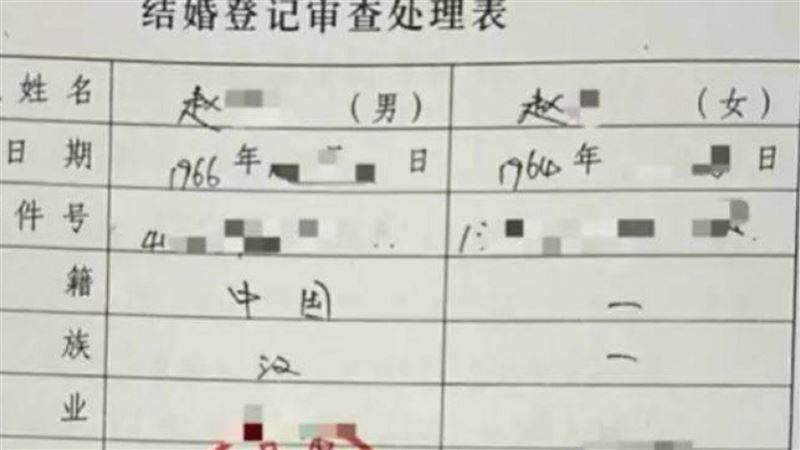 结婚登记审查处理表
姓名 赵 （男） 赵 （女）
日期 1966年 日 1964年 日
件号 41 1
籍 中国 一
族 汉 一
业